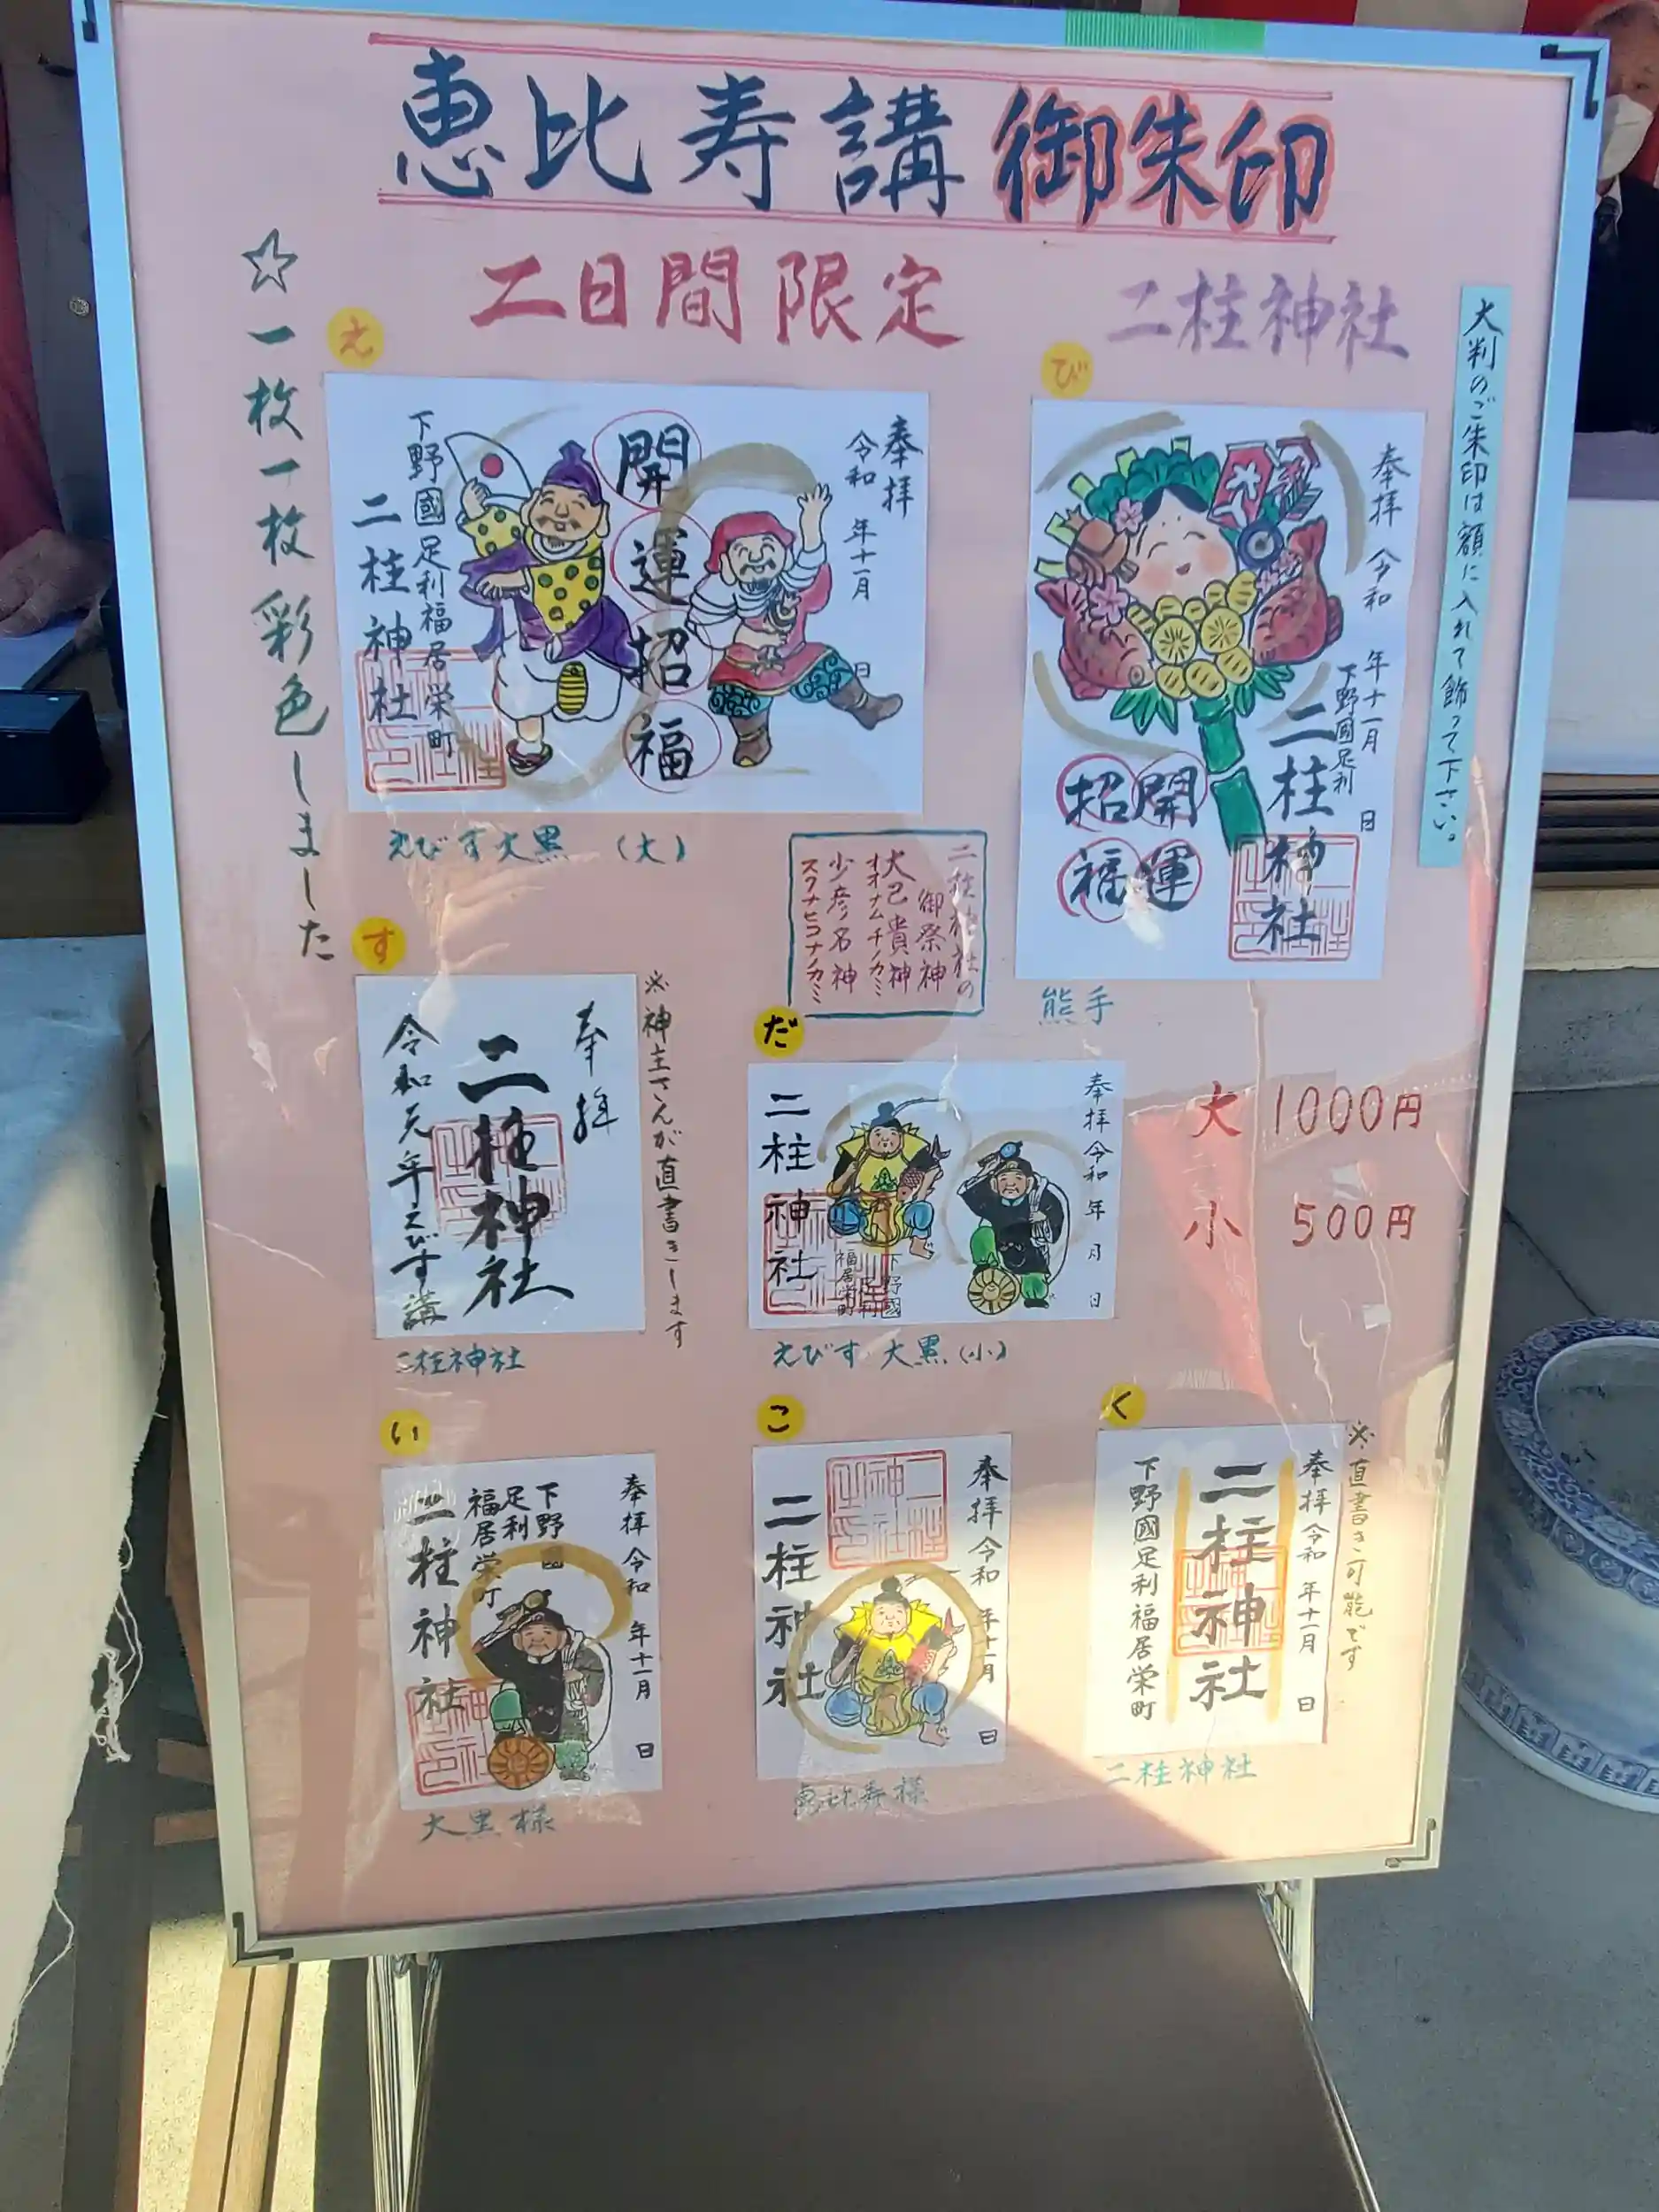 恵比寿講 御朱印
二日間限定
二柱神社
☆一枚一枚彩色しました
大判のご朱印は額に入れて飾って下さい。
え
奉拝
令和 年十一月 日
開運招福
下野國足利福居栄町
二柱神社
えびす大黒 (大)
び
奉拝 令和 年十一月 日
下野國足利
二柱神社
開運
招福
熊手
二柱神社の
御祭神
大己貴神
オオナムチノカミ
少彦名神
スクナヒコナノカミ
す
奉拝
二柱神社
令和元年えびす講
※神主さんが直書きします
二柱神社
だ
奉拝 令和 年 月 日
下野國
足利
福居栄町
二柱神社
えびす 大黒 (小)
大 1000円
小 500円
い
奉拝 令和 年十一月 日
下野國
足利
福居栄町
二柱神社
大黒様
こ
奉拝 令和 年十一月 日
二柱神社
恵比寿様
く
※直書き可能です
奉拝 令和 年十一月 日
二柱神社
下野國足利福居栄町
二柱神社